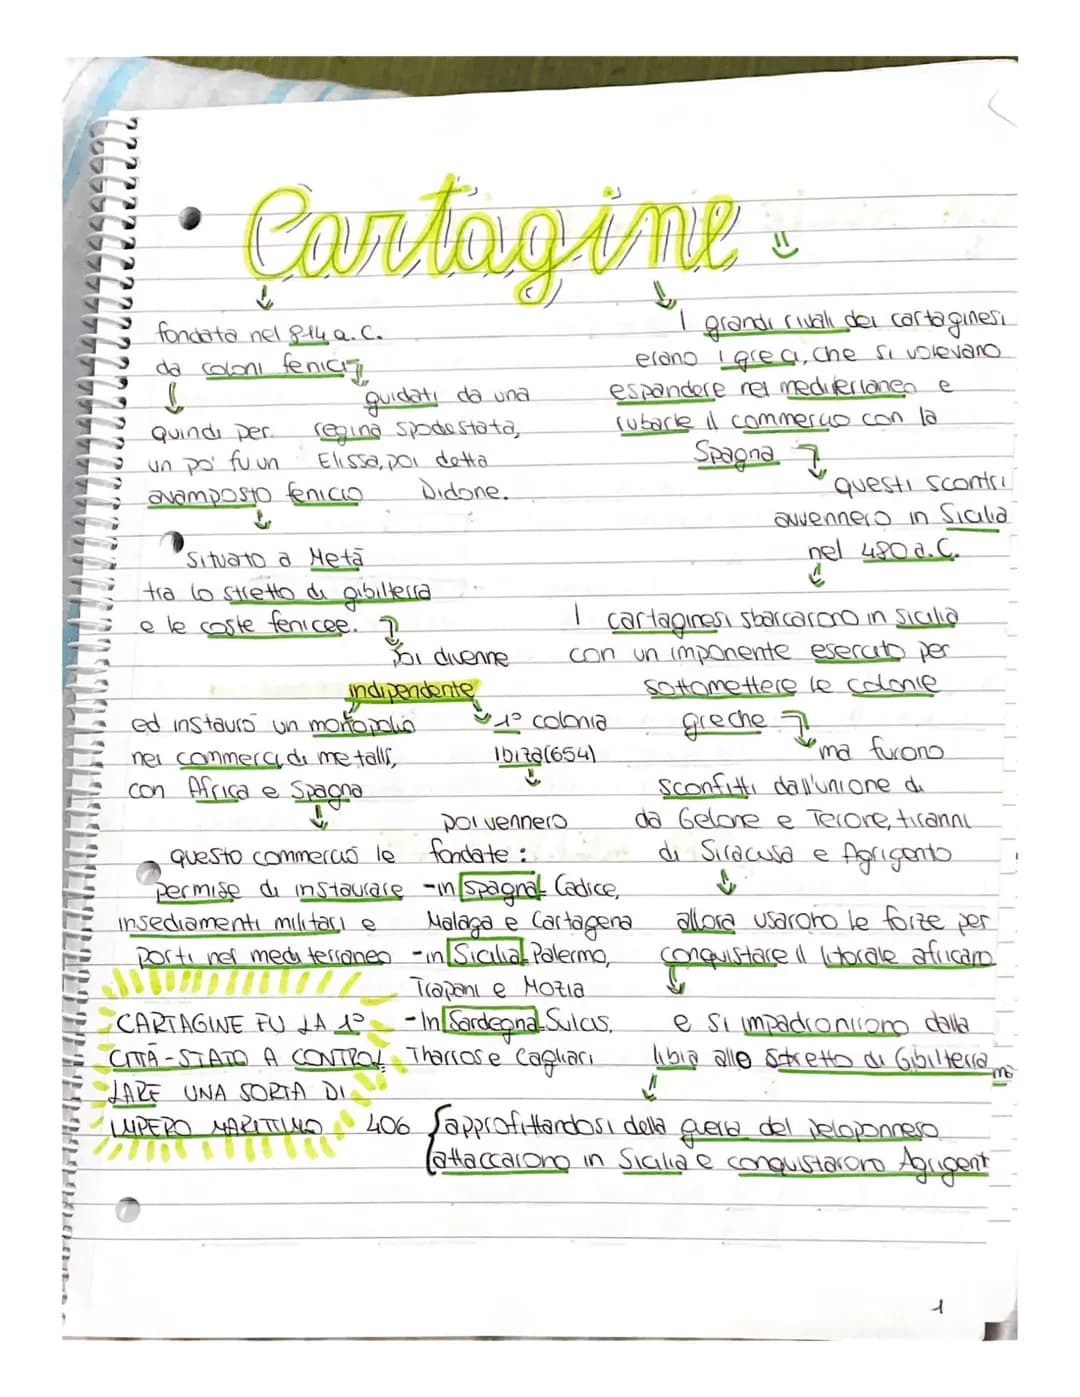 Cartagine
fondata nel 814 a.C.
da coloni fenici
guidati da una
regina spodestata,
Elissa, poi detta
Didone.
quindi per
un po' fu un
avamposto fenicio
Situato a Metà
tra lo stretto di gibilterra
e le coste fenicee.
poi divenne
indipendente
ed instaurò un monopolio
nei commerci di metalli,
con Africa e Spagna
questo commercio le
permise di instaurare
insediamenti militari e
porti nel mediterraneo
CARTAGINE FU LA 1°
CITTÀ-STATO A CONTROL
LARE UNA SORTA DI
IMPERO MARITTIMO
1° colonia
Ibiza (654)
poi vennero
fondate :
-in Spagna Cadice,
Malaga e Cartagena
-in Sicilia Palermo,
Trapani e Mozia
-In Sardegna Sulcis,
Tharros e Cagliari
I grandi rivali dei cartaginesi
erano i greci, che si volevano
espandere nel mediterraneo e
rubarle il commercio con la
Spagna
questi scontri
avvennero in Sicilia
nel 480 a.C.
I cartaginesi sbarcarono in sicilia
con un imponente esercito per
sottomettere le colonie
greche
ma furono
sconfitti dall'unione di
da Gelone e Terone, tiranni
di Siracusa e Agrigento
allora usarono le forze per
conquistare il litorale africano
e si impadronirono dalla
libia allo Stretto di Gibilterra
ma
406 approfittandosi della guerra del peloponneso
attaccarono in Sicilia e conquistarono Agrigent
1